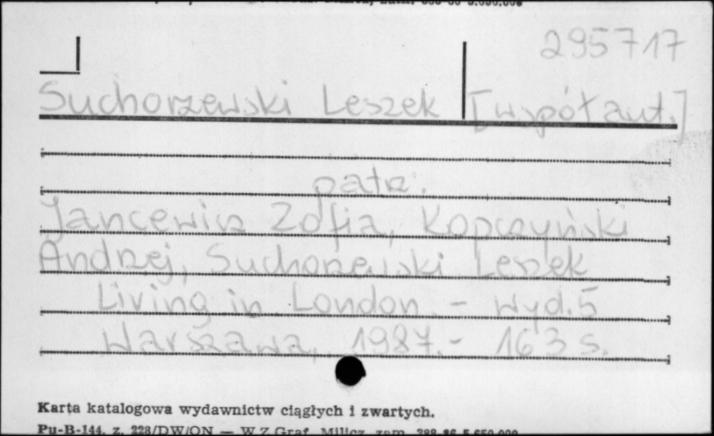 295717
Suchorzewski Leszek [współaut.]
patrz:
Jancewicz Zofia, Kopczyński
Andrzej, Suchorzewski Leszek
Living in London. - Wyd. 5
Warszawa, 1987. - 163 s.
Karta katalogowa wydawnictw ciągłych i zwartych.
Pu-B-144. z. 228/DW/ON — W.Z.Graf. Milicz zam.